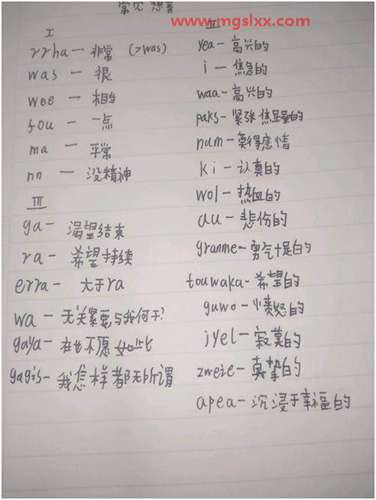 常见想音
www.mgslxx.com
I
rrha — 非常 (>was)
was — 很
wee — 相当
fou — 一点
ma — 平常
nn — 没精神
III
ga — 渴望结束
ra — 希望持续
erra — 大于ra
wa — 无关紧要与我何干?
gaya — 在也不愿如此
gagis — 我怎样都无所谓
II
yea — 高兴的
i — 焦急的
waa — 高兴的
paks — 紧张焦虑的
num — 莫得感情
ki — 认真的
wol — 热血的
au — 悲伤的
granme — 勇气十足的
touwaka — 希望的
guwo — 愤怒的
jyel — 寂寞的
zweie — 真挚的
apea — 沉浸于幸福的